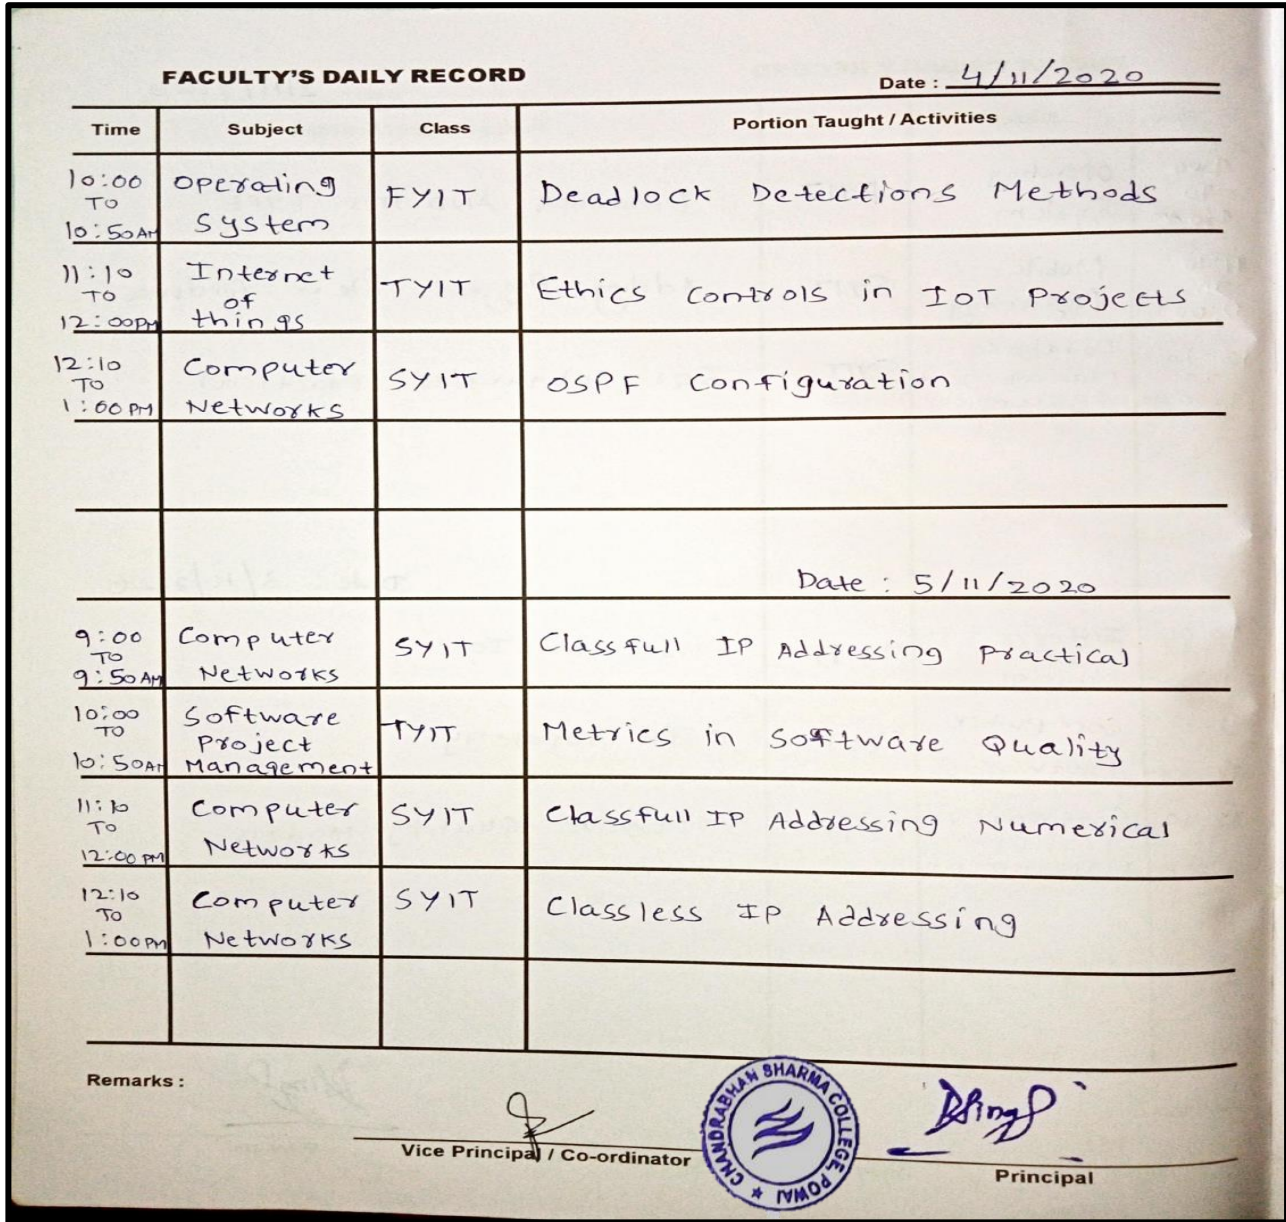 FACULTY'S DAILY RECORD
Date : 4/11/2020
Time Subject Class Portion Taught / Activities
10:00 TO 10:50AM Operating System FYIT Deadlock Detections Methods
11:10 TO 12:00PM Internet of things TYIT Ethics Controls in IOT Projects
12:10 TO 1:00PM Computer Networks SYIT OSPF Configuration
Date : 5/11/2020
9:00 TO 9:50AM Computer Networks SYIT Classfull IP Addressing Practical
10:00 TO 10:50AM Software Project Management TYIT Metrics in Software Quality
11:10 TO 12:00PM Computer Networks SYIT Classfull IP Addressing Numerical
12:10 TO 1:00PM Computer Networks SYIT Classless IP Addressing
Remarks :
Vice Principal / Co-ordinator
CHANDRABHAN SHARMA COLLEGE, POWAI
Principal